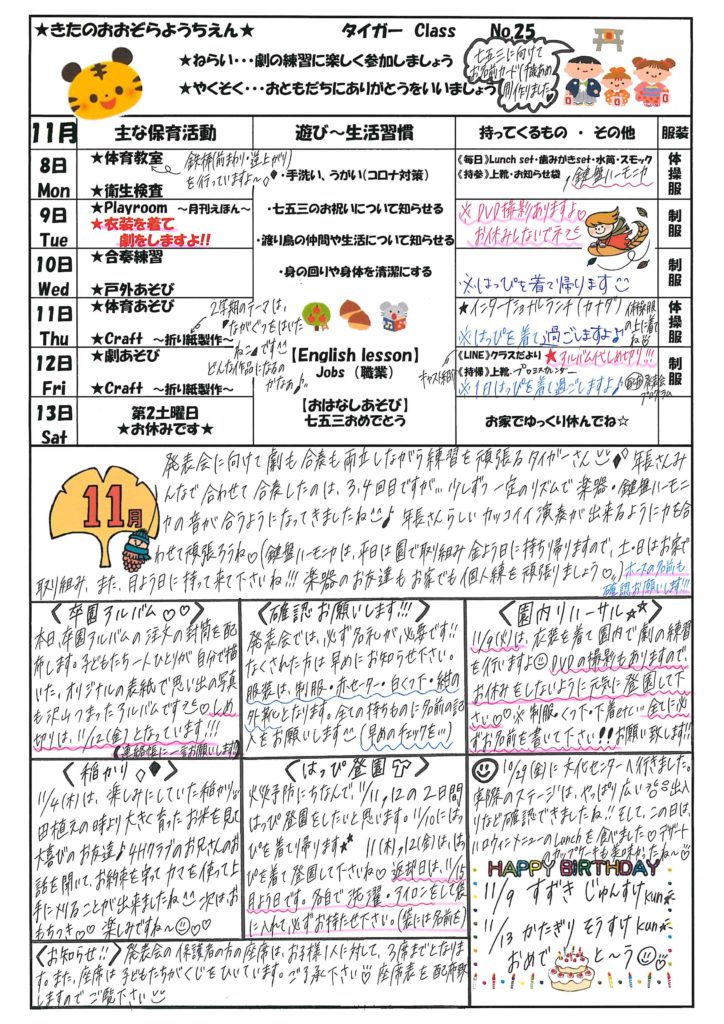 ★きたのおおぞらようちえん★ タイガー Class No.25
★ねらい・・・劇の練習に楽しく参加しましょう
★やくそく・・・おともだちにありがとうをいいましょう
七五三に向けて
お名前カードや千歳あめ
制作しました
11月 主な保育活動 遊び～生活習慣 持ってくるもの ・ その他 服装
8日 Mon
★体育教室
鉄棒(前まわり・逆上がり)
を行っていますよ～
★衛生検査
・手洗い、うがい(コロナ対策)
《毎日》Lunch set・歯みがきset・水筒・スモック
《持参》上靴・お知らせ袋 鍵盤ハーモニカ
体操服
9日 Tue
★Playroom ～月刊えほん～
★衣装を着て
劇をしますよ!!
・七五三のお祝いについて知らせる
※DVD撮影ありますよ
お休みしないでネ
制服
10日 Wed
★合奏練習
★戸外あそび
・渡り鳥の仲間や生活について知らせる
・身の回りや身体を清潔にする
※はっぴを着て帰ります
制服
11日 Thu
★体育あそび
★Craft ～折り紙製作～
2学期のテーマは、
"ながぐつをはいた
ねこ"です
どんな作品になるの
かなぁ♪
★インターナショナルランチ(カナダ)
※はっぴを着て過ごしますよ♪
体操服
の上に着てね
体操服
12日 Fri
★劇あそび
★Craft ～折り紙製作～
【English lesson】
Jobs (職業)
《LINE》クラスだより ★アルバム代しめ切り!!!
《持帰》上靴・プロミスカレンダー
※1日はっぴを着て過ごしますよ♪
制服
13日 Sat
第2土曜日
★お休みです★
【おはなしあそび】
七五三おめでとう
お家でゆっくり休んでね☆
11月
発表会に向けて劇も合奏も両立しながら練習を頑張るタイガーさん 年長さんみ
んなで合わせて合奏したのは、3、4回目ですが…少しずつ一定のリズムで楽器・鍵盤ハーモニ
カの音が合うようになってきましたね♪ 年長さんらしいカッコイイ演奏が出来るように力を合
わせて頑張ろうね♡(鍵盤ハーモニカは、平日は園で取り組み金よう日に持ち帰りますので、土・日はお家で
取り組み、また、月よう日に持って来て下さいね!!! 楽器のお友達もお家でも個人練を頑張りましょう♡) ホースの名前も
確認お願いします!!!
〈卒園アルバム♡♡〉
本日、卒園アルバムの注文の封筒を配
布します。子どもたち一人ひとりが自分で描
いた、オリジナルの表紙で思い出の写真
も沢山つまったアルバムです♡しめ
切りは、11/12(金)となっています!!!
(連絡帳に一言お願いします)
〈確認お願いします!!!〉
発表会では、必ず名札が必要です!!
なくされた方は早めにお知らせ下さい。
服装は、制服・赤セーター・白くつ下・紺の
外靴となります。全ての持ちものに名前の記
入をお願いします(早めのチェックを…)
〈園内リハーサル☆☆〉
11/9(火)は、衣装を着て園内で劇の練習
を行いますよ DVDの撮影もありますので
お休みをしないように元気に登園して下
さい♡♡ ※制服・くつ下・下着etc…全てに必
ずお名前を書いて下さい!!お願い致します!!
〈稲かり〉
11/4(木)は、楽しみにしていた稲かり
田植えの時より大きく育ったお米を見て
大喜びのお友達♪4Hクラブのお兄さんのお
話を聞いて、お約束を守ってカマを使って上
手に刈ることが出来ましたね 次はお
もちつき♡楽しみですね♡
〈はっぴ登園〉
火災予防にちなんで11/11,12の2日間
はっぴ登園をしたいと思います。11/10には
はっぴを着て帰ります★★ 11(木),12(金)は、はっ
ぴを着て登園して下さいね 返却日は、11/15
月よう日です。各自で洗濯・アイロンをして袋
に入れて、必ずお持たせ下さい。(袋には名前を)
10/29(金)に文化センターへ行きました。
実際のステージは、やっぱり広い 出入
りなど確認できましたね!! そして、この日は、
ハロウィンメニューのLunchを食べました♡デザート
カップケーキも美味しかったね～
HAPPY BIRTHDAY
11/9 すずき じゅんすけ kun
11/13 かたぎり そうすけ kun
おめで と～う
〈お知らせ!!〉発表会の保護者の方の座席は、お子様1人に対して、3席までとなりま
す。また、座席は子どもたちがくじをひいています。ご了承下さい♡座席表を配布致
しますのでご覧下さい